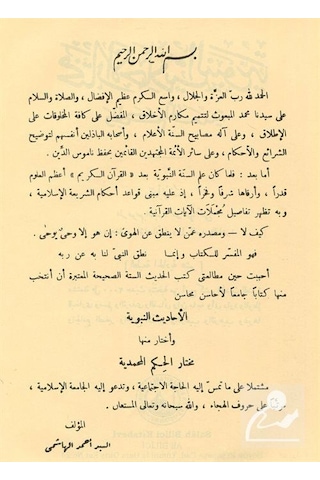 بسم الله الرحمن الرحيم
الحمد لله رب العزة والجلال، واسع الكرم عظيم الإفضال، والصلاة والسلام
على سيدنا محمد المبعوث لتتميم مكارم الأخلاق، المفضل على كافة المخلوقات على
الإطلاق، وعلى آله مصابيح السنة الأعلام، وأصحابه الباذلين أنفسهم لتوضيح
الشرائع والأحكام، وعلى سائر الأئمة المجتهدين القائمين بحفظ ناموس الدين.
أما بعد: فلما كان علم السنة النبوية بعد «القرآن الكريم» أعظم العلوم
قدراً، وأرقاها شرفاً وفخراً، إذ عليه مبنى قواعد أحكام الشريعة الإسلامية،
وبه تظهر تفاصيل مجملات الآيات القرآنية.
كيف لا — ومصدره عمن لا ينطق عن الهوى: إن هو إلا وحى يوحى.
فهو المفسر للكتاب وإنما نطق النبى لنا به عن ربه
أحببت حين مطالعتى كتب الحديث الستة الصحيحة المعتبرة أن أنتخب
منها كتاباً جامعاً لأحاسن محاسن
الأحاديث النبوية
وأختار منها
مختار الحكم المحمدية
مشتملا على ما تمس إليه الحاجة الاجتماعية، وتدعو إليه الجامعة الإسلامية،
على حروف الهجاء، والله سبحانه وتعالى المستعان.
المؤلف
السيد أحمد الهاشمى